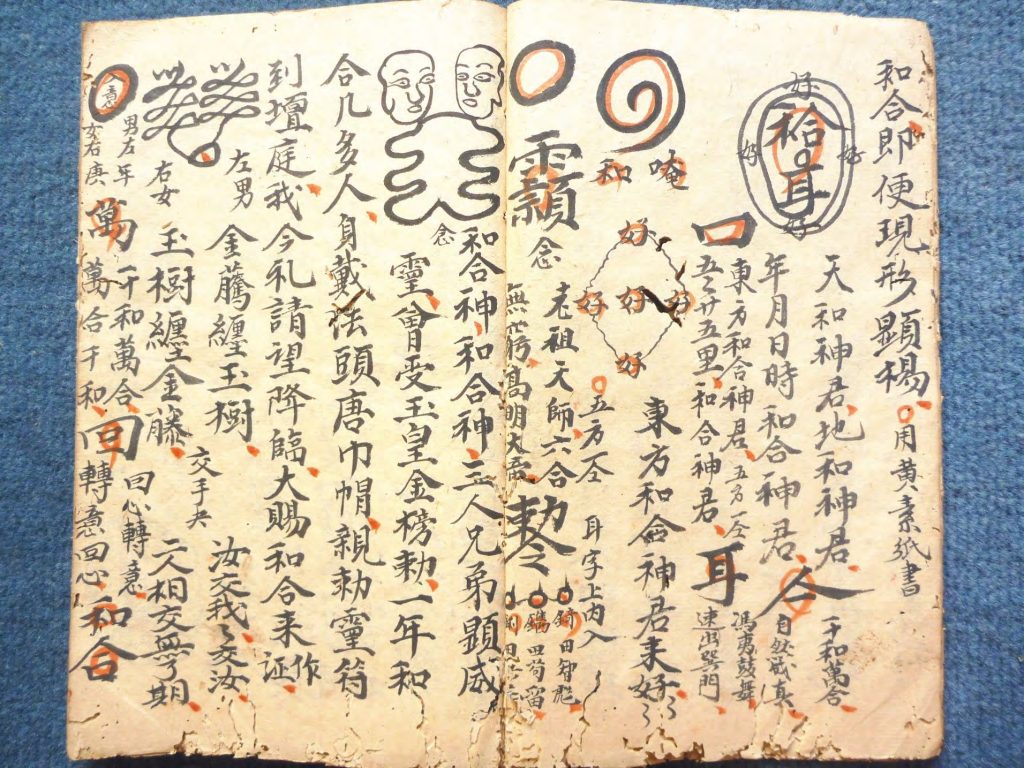 和合即便現形顯楊
用黃素紙書
好
好 好
好
天和神君地和神君
千和萬合
年月日時和合神君
合
自然成真
口
東方和合神君五方仝
五五廿五里和合神君
耳
唵
和
好
好 好 好
好
東方和合神君來好
五方仝
耳字上內入
念
老祖天師六合
無窮高明大帝
敕
念
和合神和合神三人兄弟顯威
靈曾受玉皇金榜勅一年和
合几多人身戴法頭唐巾帽親勅靈符
到壇庭我今礼請望降臨大賜和合來作証
左男
金騰纏玉樹
汝交我我交汝
右女
玉樹纏金藤
交手央
二人相交無了期
男左年
女右庚
萬
千和萬合
萬合千和
回
回心轉意
轉意回心
和合